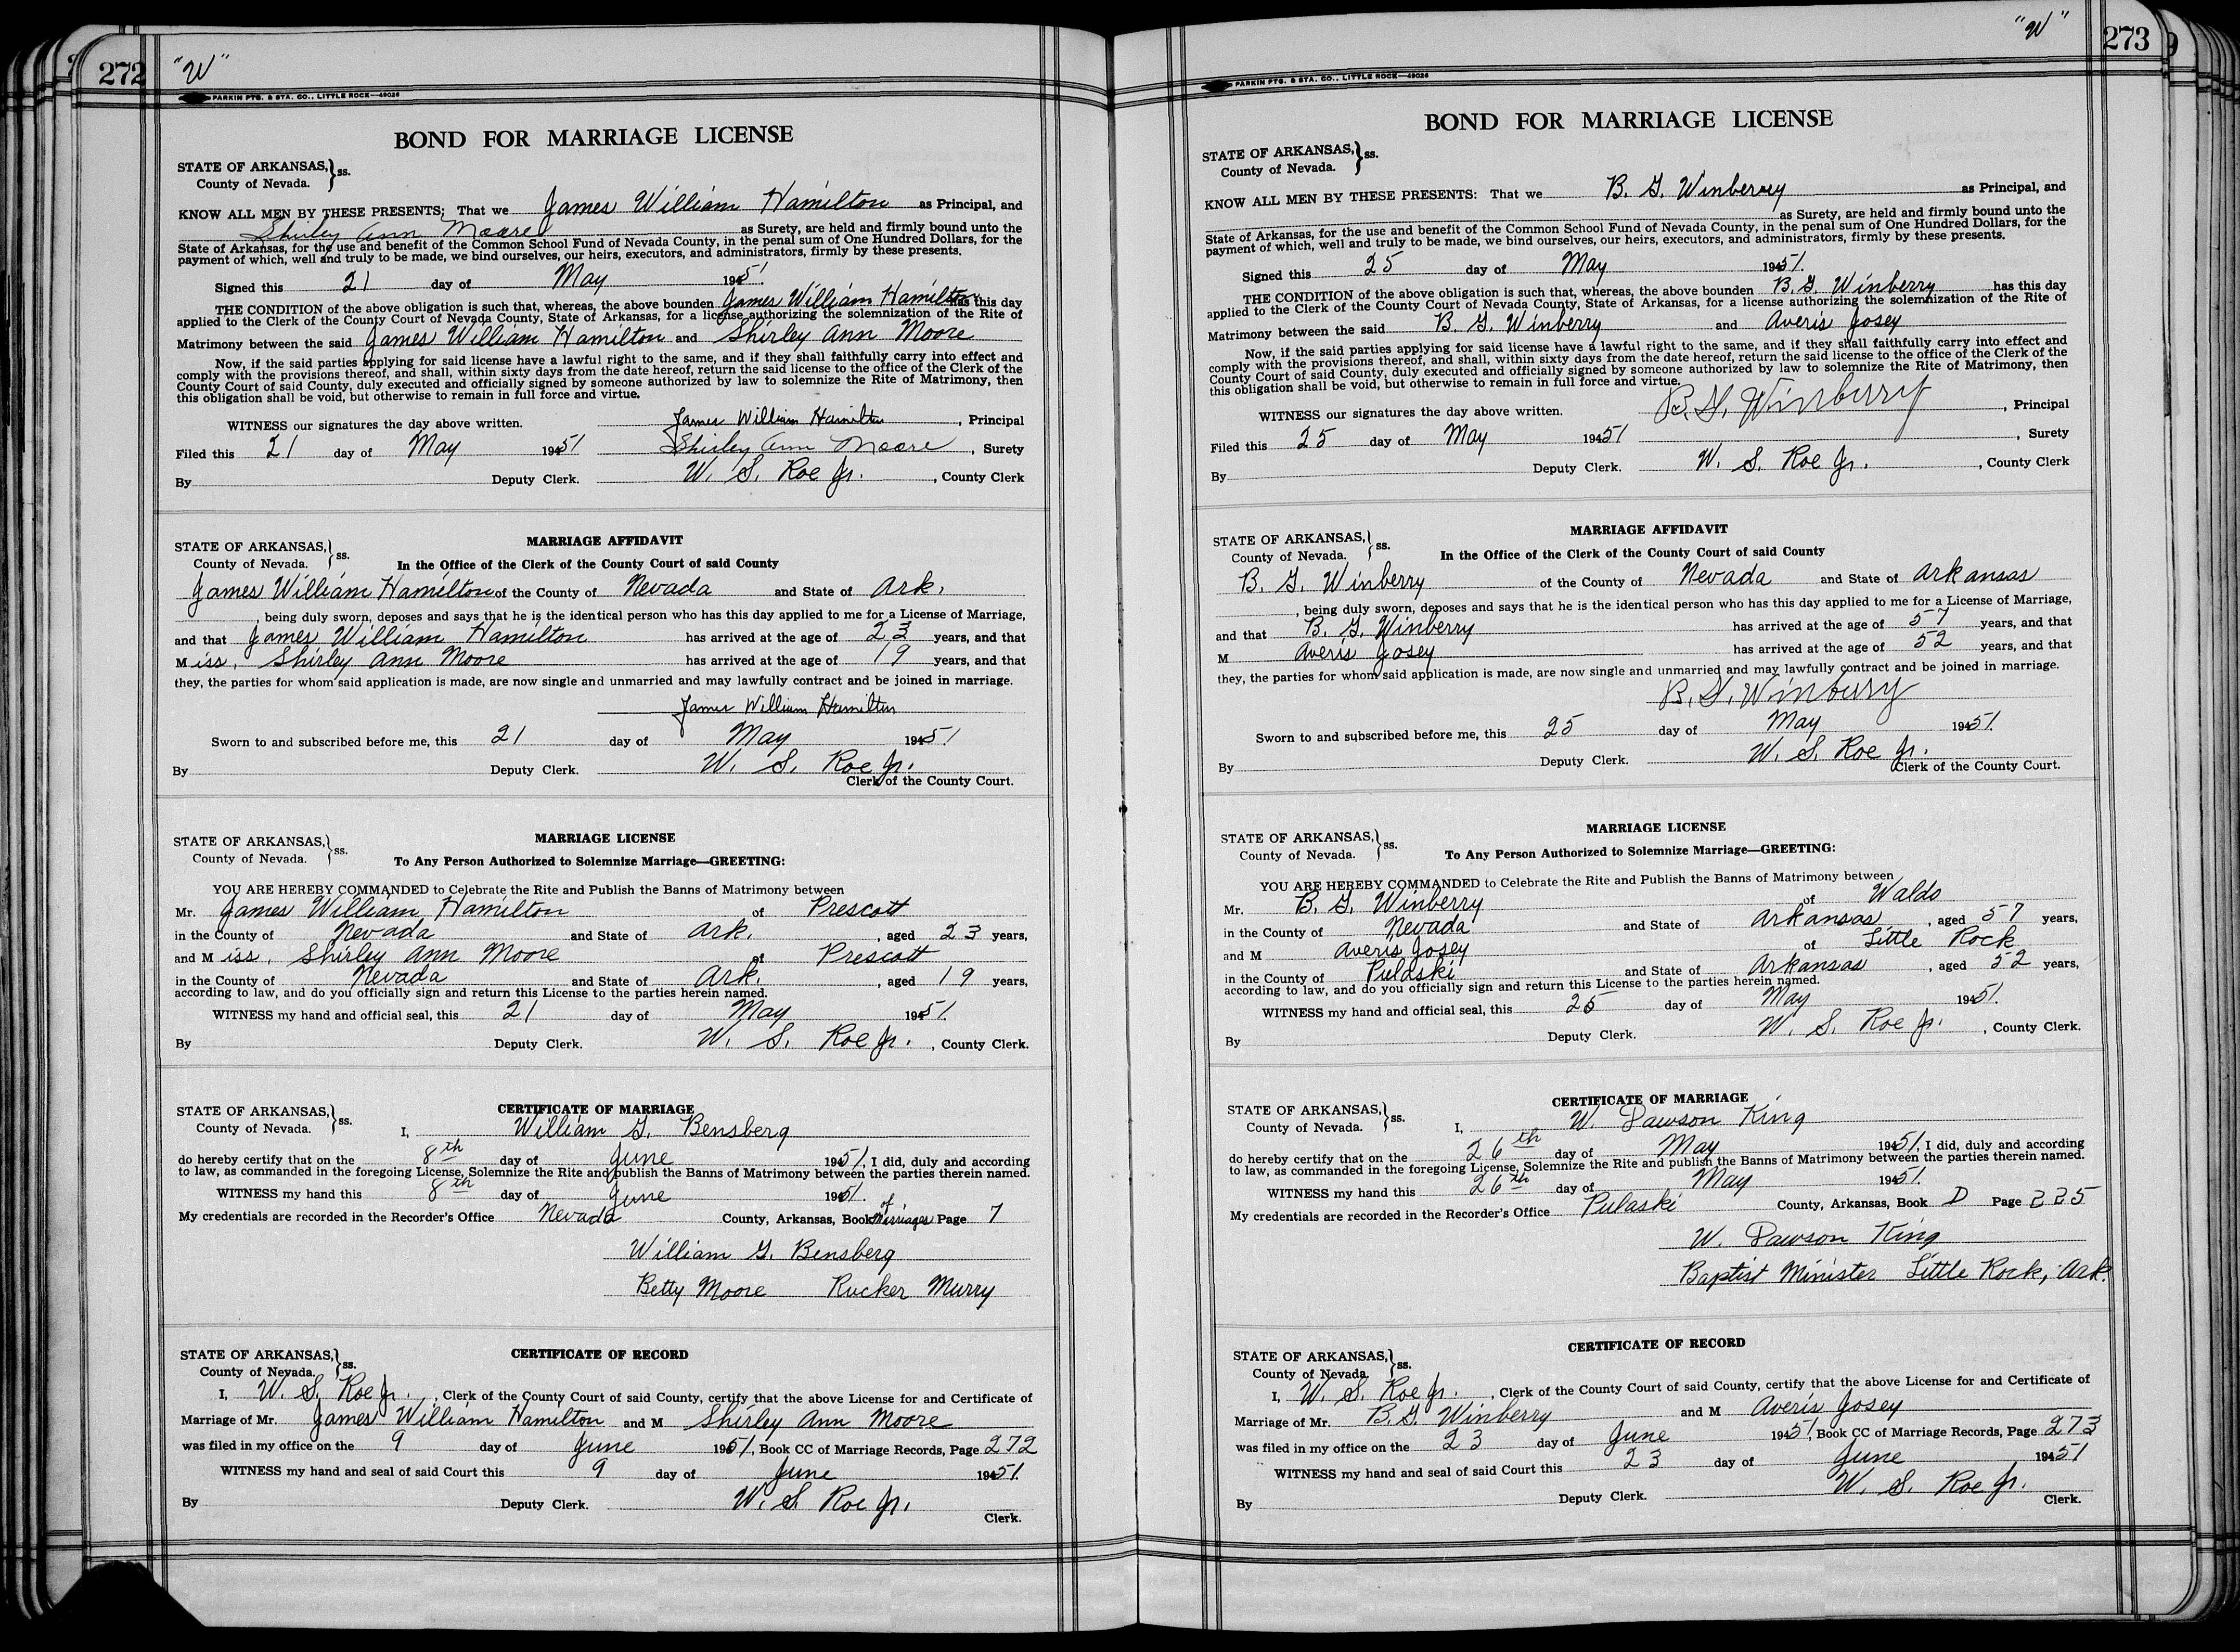 272 "W"
PARKIN PTG. & STA. CO., LITTLE ROCK—49026
BOND FOR MARRIAGE LICENSE
STATE OF ARKANSAS, } ss.
County of Nevada.
KNOW ALL MEN BY THESE PRESENTS: That we James William Hamilton as Principal, and
Shirley Ann Moore as Surety, are held and firmly bound unto the
State of Arkansas, for the use and benefit of the Common School Fund of Nevada County, in the penal sum of One Hundred Dollars, for the
payment of which, well and truly to be made, we bind ourselves, our heirs, executors, and administrators, firmly by these presents.
Signed this 21 day of May 1951.
THE CONDITION of the above obligation is such that, whereas, the above bounden James William Hamilton has this day
applied to the Clerk of the County Court of Nevada County, State of Arkansas, for a license authorizing the solemnization of the Rite of
Matrimony between the said James William Hamilton and Shirley Ann Moore
Now, if the said parties applying for said license have a lawful right to the same, and if they shall faithfully carry into effect and
comply with the provisions thereof, and shall, within sixty days from the date hereof, return the said license to the office of the Clerk of the
County Court of said County, duly executed and officially signed by someone authorized by law to solemnize the Rite of Matrimony, then
this obligation shall be void, but otherwise to remain in full force and virtue.
WITNESS our signatures the day above written. James William Hamilton, Principal
Filed this 21 day of May 1951 Shirley Ann Moore, Surety
By Deputy Clerk. W. S. Roe Jr., County Clerk
MARRIAGE AFFIDAVIT
STATE OF ARKANSAS, } ss.
County of Nevada. In the Office of the Clerk of the County Court of said County
James William Hamilton of the County of Nevada and State of Ark.
, being duly sworn, deposes and says that he is the identical person who has this day applied to me for a License of Marriage,
and that James William Hamilton has arrived at the age of 23 years, and that
Miss. Shirley Ann Moore has arrived at the age of 19 years, and that
they, the parties for whom said application is made, are now single and unmarried and may lawfully contract and be joined in marriage.
James William Hamilton
Sworn to and subscribed before me, this 21 day of May 1951
By Deputy Clerk. W. S. Roe Jr.
Clerk of the County Court.
MARRIAGE LICENSE
STATE OF ARKANSAS, } ss.
County of Nevada. To Any Person Authorized to Solemnize Marriage—GREETING:
YOU ARE HEREBY COMMANDED to Celebrate the Rite and Publish the Banns of Matrimony between
Mr. James William Hamilton of Prescott
in the County of Nevada and State of Ark., aged 23 years,
and Miss. Shirley Ann Moore of Prescott
in the County of Nevada and State of Ark., aged 19 years,
according to law, and do you officially sign and return this License to the parties herein named.
WITNESS my hand and official seal, this 21 day of May 1951.
By Deputy Clerk. W. S. Roe Jr., County Clerk.
CERTIFICATE OF MARRIAGE
STATE OF ARKANSAS, } ss.
County of Nevada. I, William G. Bensberg
do hereby certify that on the 8th day of June 1951, I did, duly and according
to law, as commanded in the foregoing License, Solemnize the Rite and publish the Banns of Matrimony between the parties therein named.
WITNESS my hand this 8th day of June 1951.
My credentials are recorded in the Recorder's Office Nevada County, Arkansas, Book of Marriages Page 7
William G. Bensberg
Betty Moore Rucker Murry
CERTIFICATE OF RECORD
STATE OF ARKANSAS, } ss.
County of Nevada.
I, W. S. Roe Jr., Clerk of the County Court of said County, certify that the above License for and Certificate of
Marriage of Mr. James William Hamilton and M Shirley Ann Moore
was filed in my office on the 9 day of June 1951, Book CC of Marriage Records, Page 272
WITNESS my hand and seal of said Court this 9 day of June 1951.
By Deputy Clerk. W. S. Roe Jr.
Clerk.
"W" 273
PARKIN PTG. & STA. CO., LITTLE ROCK—49026
BOND FOR MARRIAGE LICENSE
STATE OF ARKANSAS, } ss.
County of Nevada.
KNOW ALL MEN BY THESE PRESENTS: That we B. G. Winberry as Principal, and
as Surety, are held and firmly bound unto the
State of Arkansas, for the use and benefit of the Common School Fund of Nevada County, in the penal sum of One Hundred Dollars, for the
payment of which, well and truly to be made, we bind ourselves, our heirs, executors, and administrators, firmly by these presents.
Signed this 25 day of May 1951.
THE CONDITION of the above obligation is such that, whereas, the above bounden B. G. Winberry has this day
applied to the Clerk of the County Court of Nevada County, State of Arkansas, for a license authorizing the solemnization of the Rite of
Matrimony between the said B. G. Winberry and Averis Josey
Now, if the said parties applying for said license have a lawful right to the same, and if they shall faithfully carry into effect and
comply with the provisions thereof, and shall, within sixty days from the date hereof, return the said license to the office of the Clerk of the
County Court of said County, duly executed and officially signed by someone authorized by law to solemnize the Rite of Matrimony, then
this obligation shall be void, but otherwise to remain in full force and virtue.
WITNESS our signatures the day above written. B. G. Winberry, Principal
Filed this 25 day of May 1951 , Surety
By Deputy Clerk. W. S. Roe Jr., County Clerk
MARRIAGE AFFIDAVIT
STATE OF ARKANSAS, } ss.
County of Nevada. In the Office of the Clerk of the County Court of said County
B. G. Winberry of the County of Nevada and State of Arkansas
, being duly sworn, deposes and says that he is the identical person who has this day applied to me for a License of Marriage,
and that B. G. Winberry has arrived at the age of 57 years, and that
M Averis Josey has arrived at the age of 52 years, and that
they, the parties for whom said application is made, are now single and unmarried and may lawfully contract and be joined in marriage.
B. G. Winberry
Sworn to and subscribed before me, this 25 day of May 1951.
By Deputy Clerk. W. S. Roe Jr.
Clerk of the County Court.
MARRIAGE LICENSE
STATE OF ARKANSAS, } ss.
County of Nevada. To Any Person Authorized to Solemnize Marriage—GREETING:
YOU ARE HEREBY COMMANDED to Celebrate the Rite and Publish the Banns of Matrimony between
Mr. B. G. Winberry of Waldo
in the County of Nevada and State of Arkansas, aged 57 years,
and M Averis Josey of Little Rock
in the County of Pulaski and State of Arkansas, aged 52 years,
according to law, and do you officially sign and return this License to the parties herein named.
WITNESS my hand and official seal, this 25 day of May 1951.
By Deputy Clerk. W. S. Roe Jr., County Clerk.
CERTIFICATE OF MARRIAGE
STATE OF ARKANSAS, } ss.
County of Nevada. I, W. Dawson King
do hereby certify that on the 26th day of May 1951, I did, duly and according
to law, as commanded in the foregoing License, Solemnize the Rite and publish the Banns of Matrimony between the parties therein named.
WITNESS my hand this 26th day of May 1951.
My credentials are recorded in the Recorder's Office Pulaski County, Arkansas, Book D Page 225
W. Dawson King
Baptist Minister Little Rock, Ark.
CERTIFICATE OF RECORD
STATE OF ARKANSAS, } ss.
County of Nevada
I, W. S. Roe Jr., Clerk of the County Court of said County, certify that the above License for and Certificate of
Marriage of Mr. B. G. Winberry and M Averis Josey
was filed in my office on the 23 day of June 1951, Book CC of Marriage Records, Page 273
WITNESS my hand and seal of said Court this 23 day of June 1951
By Deputy Clerk. W. S. Roe Jr.
Clerk.